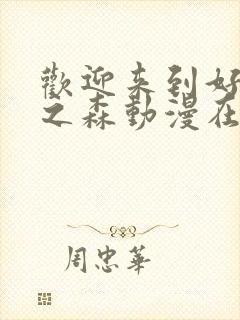 歡迎来到好
之森動漫在
周忠華